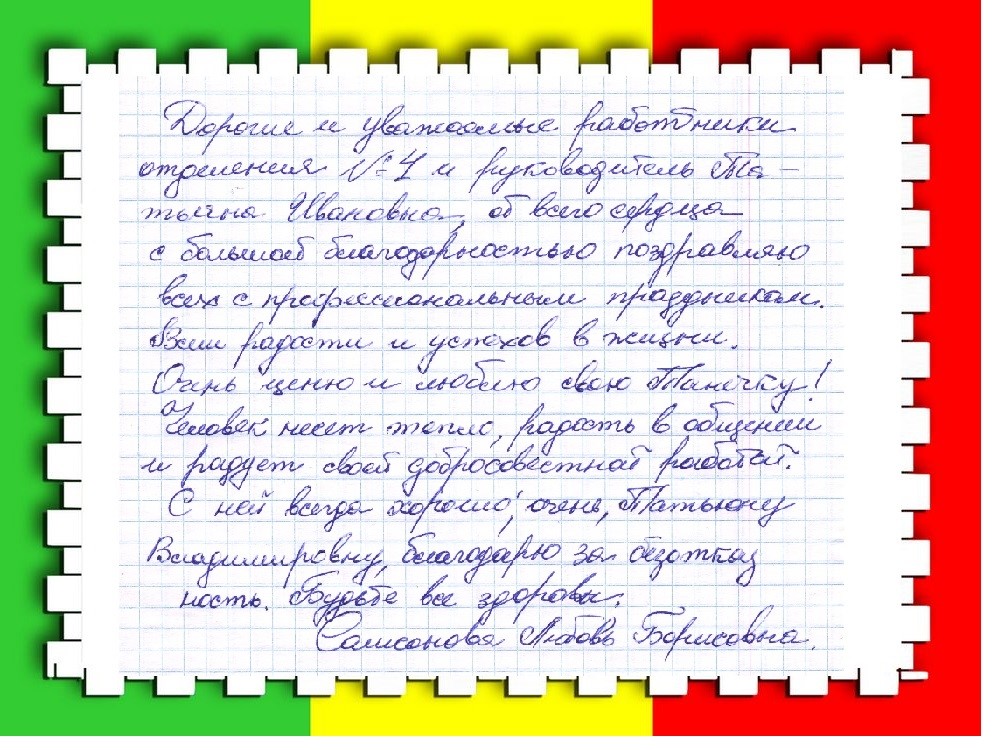 Дорогие и уважаемые работники
отделения №4 и руководитель Та-
тьяна Ивановна, от всего сердца
с большой благодарностью поздравляю
всех с профессиональным праздником.
Вам радости и успехов в жизни.
Очень ценю и люблю свою Танечку!
Человек несет тепло, радость в общении
и радует своей добросовестной работой.
С ней всегда хорошо, очень, Татьяну
Владимировну, благодарю за безотказ
ность. Будьте все здоровы.
Самсонова Любовь Борисовна.